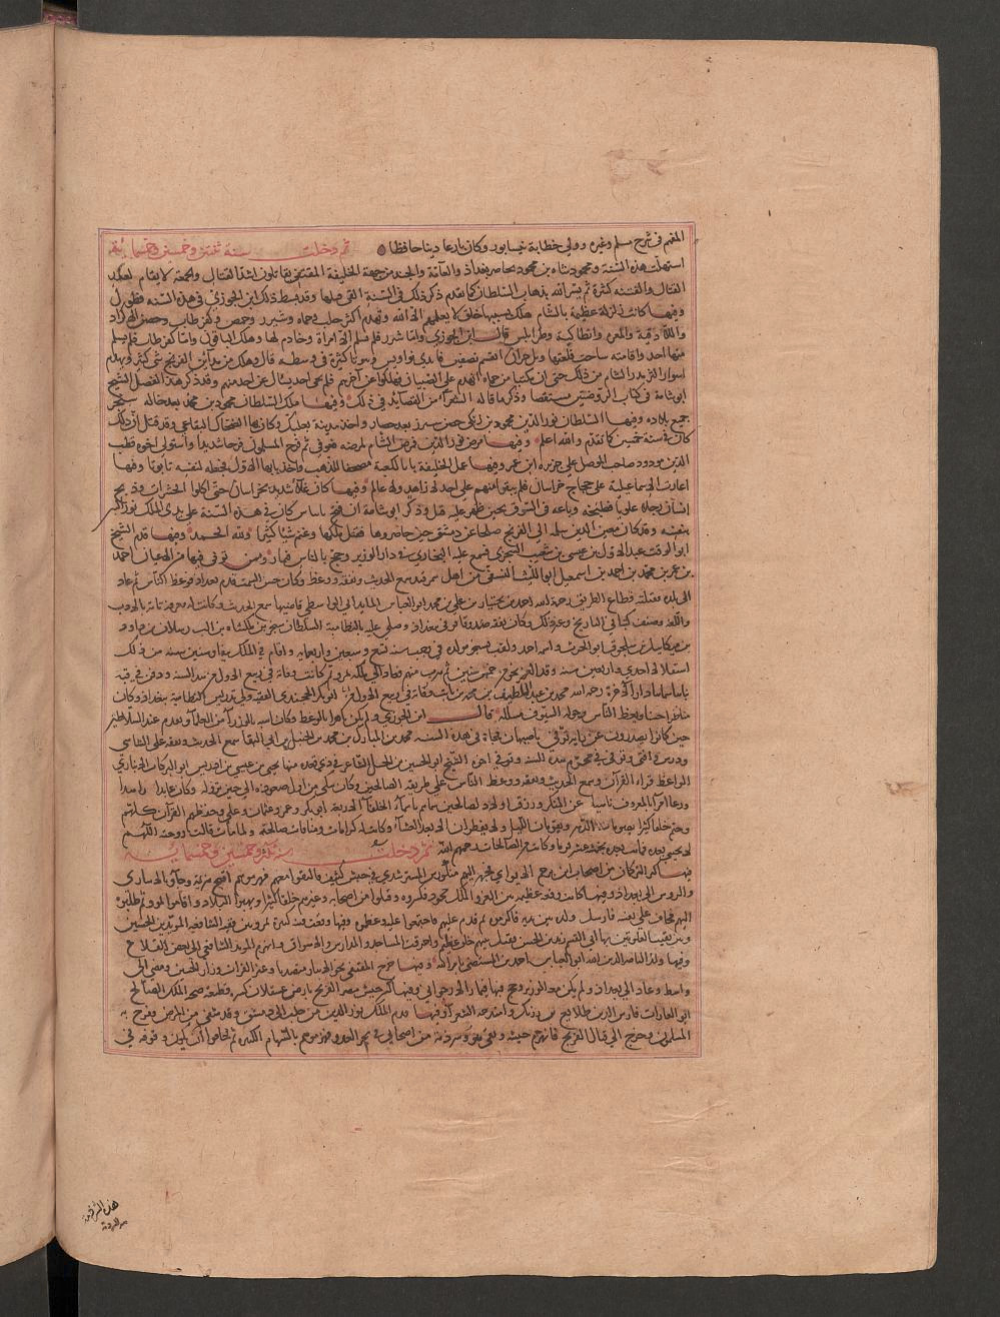 المفهم في شرح مسلم وغيره وولي خطابة نيسابور وكان بارعا دينا حافظا ثم دخلت سنة ثنتين وخمسين وخمسمائة
استهلت هذه السنة ومحمد شاه بن محمود محاصر بغداد والعامة والجند من جهة الخليفة المقتفي يقاتلون اشد القتال والجمعة لا تقام لعذر
القتال والفتنة كثيرة ثم يسر الله بذهاب السلطان كما تقدم ذكر ذلك في السنة التي قبلها وقد بسط ذلك ابن الجوزي في هذه السنة فطول
وفيها كانت زلزلة عظيمة بالشام هلك بسببها خلق لا يعلمهم الا الله وتهدم اكثر حلب وحماه وشيزر وحمص وكفر طاب وحصن الاكراد
واللاذقية والمعرة وانطاكية وطرابلس قال ابن الجوزي واما شيزر فلم يسلم الا امراة وخادم لها وهلك الباقون واما كفر طاب فلم يسلم
منها احد وافامية ساخت قلعتها وتل حران انقسم نصفين فابدى نواويس وبيوتا كثيرة في وسطه قال وهلك من مدائن الفرنج شي كثير وتهدم
اسوار اكثر مدن الشام من ذلك حتى ان مكتبا من حماه انهدم على الصبيان فهلكوا عن اخرهم فلم يجي احد يسال عن احد منهم وقد ذكر هذا الفصل الشيخ
ابو شامة في كتاب الروضتين مستقصا وذكر ما قاله الشعرا من القصائد في ذلك وفيها ملك السلطان محمود بن محمد بعد خاله سنجر
جميع بلاده وفيها السلطان نور الدين محمود بن زنكي حصن شيزر بعد حصار واخذ مدينة بعلبك وكان بها الضحاك البقاعي وقد قيل ان ذلك
كان في سنة خمسين كما تقدم والله اعلم وفيها مرض نور الدين فمرض الشام لمرضه ثم عوفي ففرح المسلمون فرحا شديدا واستولى اخوه قطب
الدين مودود صاحب الموصل على جزيرة ابن عمر وفيها عمل الخليفة بابا للكعبة مصفحا بالذهب واخذ بابها الاول فجعله لنفسه تابوتا وفيها
اغارت الاسماعيلية على حجاج خراسان فلم يبقوا منهم على احد لا زاهد ولا عالم وفيها كان غلاء شديد بخراسان حتى اكلوا الحشرات وذبح
انسان رجلا علويا فطبخه وباعه في السوق فحين ظهر عليه قتل وذكر ابو شامة ان فتح بانياس كان في هذه السنة على يدي الملك نور الدين
بنفسه وقد كان معين الدين سلمه الى الفرنج صلحا عن دمشق حين حاصروها فقتل ملكها وغنم شيئا كثيرا ولله الحمد وفيها قدم الشيخ
ابو الوقت عبد الاول بن عيسى بن شعيب السجزي فسمع عليه البخاري في دار الوزير وحج بالناس قيماز ومن توفي فيها من الاعيان احمد
بن عمر بن محمد بن احمد بن اسمعيل ابو الليث النسفي من اهل سمرقند سمع الحديث وتفقه ووعظ وكان حسن السمت قدم بغداد فوعظ الناس ثم عاد
الى بلده فقتله قطاع الطريق رحمه الله احمد بن بختيار بن علي بن محمد ابو العباس المايداي الواسطي قاضيها سمع الحديث وكانت له معرفة تامة بالادب
واللغة وصنف كتبا في التاريخ وغير ذلك وكان ثقة صدوقا توفي ببغداد وصلي عليه بالنظامية السلطان سنجر بن ملكشاه بن الب رسلان بن داود
بن ميكائيل بن سلجوق ابو الحرث واسمه احمد ولقب بسنجر مولده في رجب سنة تسع وسبعين واربعمائة واقام في الملك نيفا وستين سنة من ذلك
استقلالا احدى واربعين سنة وقد اسره الغز نحو من خمس سنين ثم هرب منهم فعاد الى ملكه بمرو ثم كانت وفاته في ربيع الاول من هذه السنة ودفن في قبة
بناها سماها دار الاخرة رحمه الله محمد بن عبد اللطيف بن محمد بن ثابت ابو بكر الخجندي الفقيه ولي تدريس النظامية ببغداد وكان
يناظر احسنا ويعظ الناس وحوله السيوف مسللة قال ابن الجوزي ولم يكن ماهرا بالوعظ وكان اشبه بالوزراء من العلما وتقدم عند السلاطين
حتى كانوا يصدرون عن رايه توفي باصبهان فجاة في هذه السنة محمد بن المبارك بن محمد بن الخل ابو الحسن بن ابي البقا سمع الحديث وتفقه على الشاشي
ودرس وافتى وتوفي في محرم هذه السنة وتوفي اخوه الشيخ ابو الحسين بن الخل الشاعر في ذي القعدة منها يحيى بن عيسى بن ادريس ابو البركات الانباري
الواعظ قراء القران وسمع الحديث وتفقه ووعظ الناس على طريقة الصالحين وكان يبكي من اول صعوده الى حين نزوله وكان عابدا زاهدا
ورعا امرا بالمعروف ناهيا عن المنكر ورزق اولادا صالحين سماهم باسماء الخلفا الاربعة ابو بكر وعمر وعثمان وعلي وحفظهم القران كلهم
وختم خلقا كثيرا يصومان الدهر ويقومان الليل ولا يفطران الا بعد العشاء وكانت له كرامات ومنامات صالحة ولما مات قالت زوجته اللهم
لا تحييني بعده فماتت بعده بخمسة عشر يوما وكانت من الصالحات رحمهم الله ثم دخلت سنة ثلاث وخمسين وخمسمائة
فيها كثر التركمان من اصحاب ابن برجم الايوائي فجهز اليهم منكورس المسترشدي في جيش كثيف فالتقوا معهم فهزموهم اقبح هزيمة وجاؤا بالاسارى
والروس الى بغداد وفيها كانت وقعة عظيمة بين الغز والملك محمود فكسروه وقتلوا من اصحابه وغيرهم خلقا كثيرا ونهبوا البلاد واقاموا بمرو ثم طلبوه
اليهم فخاف على نفسه فارسل ولده بين يديه فاكرموه ثم قدم عليهم فاجتمعوا عليه وعظموه وفيها وقعت فتنة كبيرة بمرو بين فقيه الشافعية المويد بن الحسين
وبين نقيب العلويين بها ابي القسم زيد بن الحسن فقتل بينهم خلق عظيم واحرقت المساجد والمدارس والاسواق وانهزم المويد الشافعي الى بعض القلاع
وفيها ولد الناصر لدين الله ابو العباس احمد بن المستضي بامر الله وفيها خرج المقتفي نحو الانبار متصيدا وعبر الفرات وزار الحسين ومضى الى
واسط وعاد الى بغداد ولم يكن معه الوزير وحج فيها قيماز الارجواني وفيها كسر جيش مصر الفرنج بارض عسقلان كسرة فظيعة صحبة الملك الصالح
ابو الغارات فارس الدين طلائع بن رزيك وامتدحه الشعرا وفيها قدم الملك نور الدين من حلب الى دمشق وقد شفي من المرض ففرح به
المسلمون وخرج الى قتال الفرنج فانهزم جيشه وبقي هو وشرذمة من اصحابه في نحر العدو فرموهم بالسهام الكثيرة ثم خافوا ان يكون وقوفه في